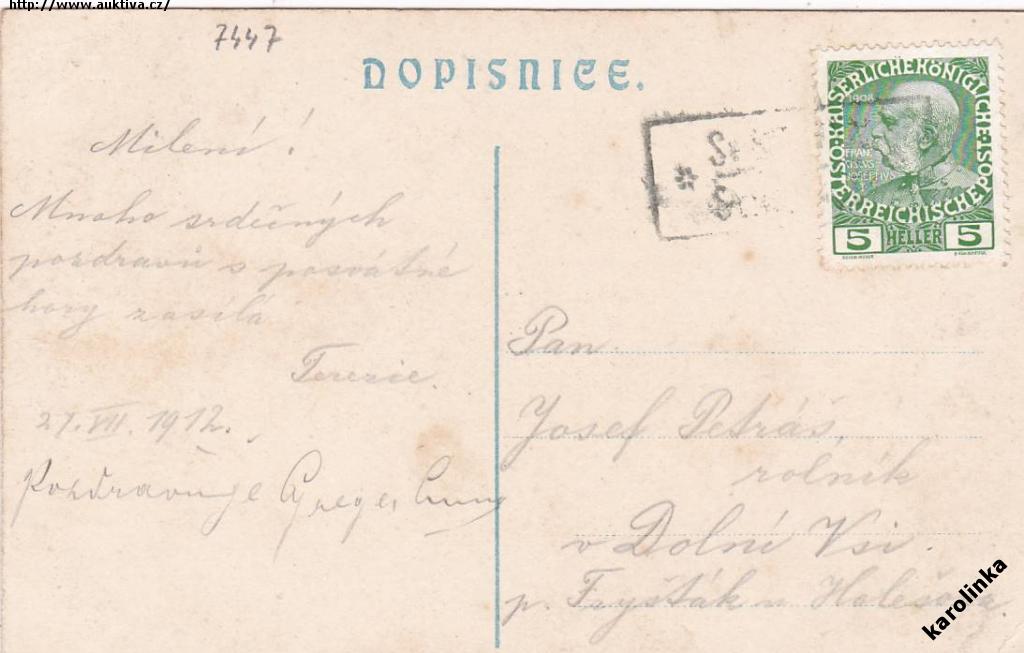 http://www.auktiva.cz/
7447
DOPISNICE.
Milení!
Mnoho srdečných
pozdravů s posvátné
hory zasílá
Terezie.
27.VII. 1912.
Pozdravuje
ÖSTERREICHISCHE POST KAISERLICHE KÖNIGLICHE
1908
FRANC
JOSEPHVS
5 HELLER 5
Pan
Josef Petráš,
rolník
v Dolní Vsi.
p. Fryšták u Holešova
karolinka